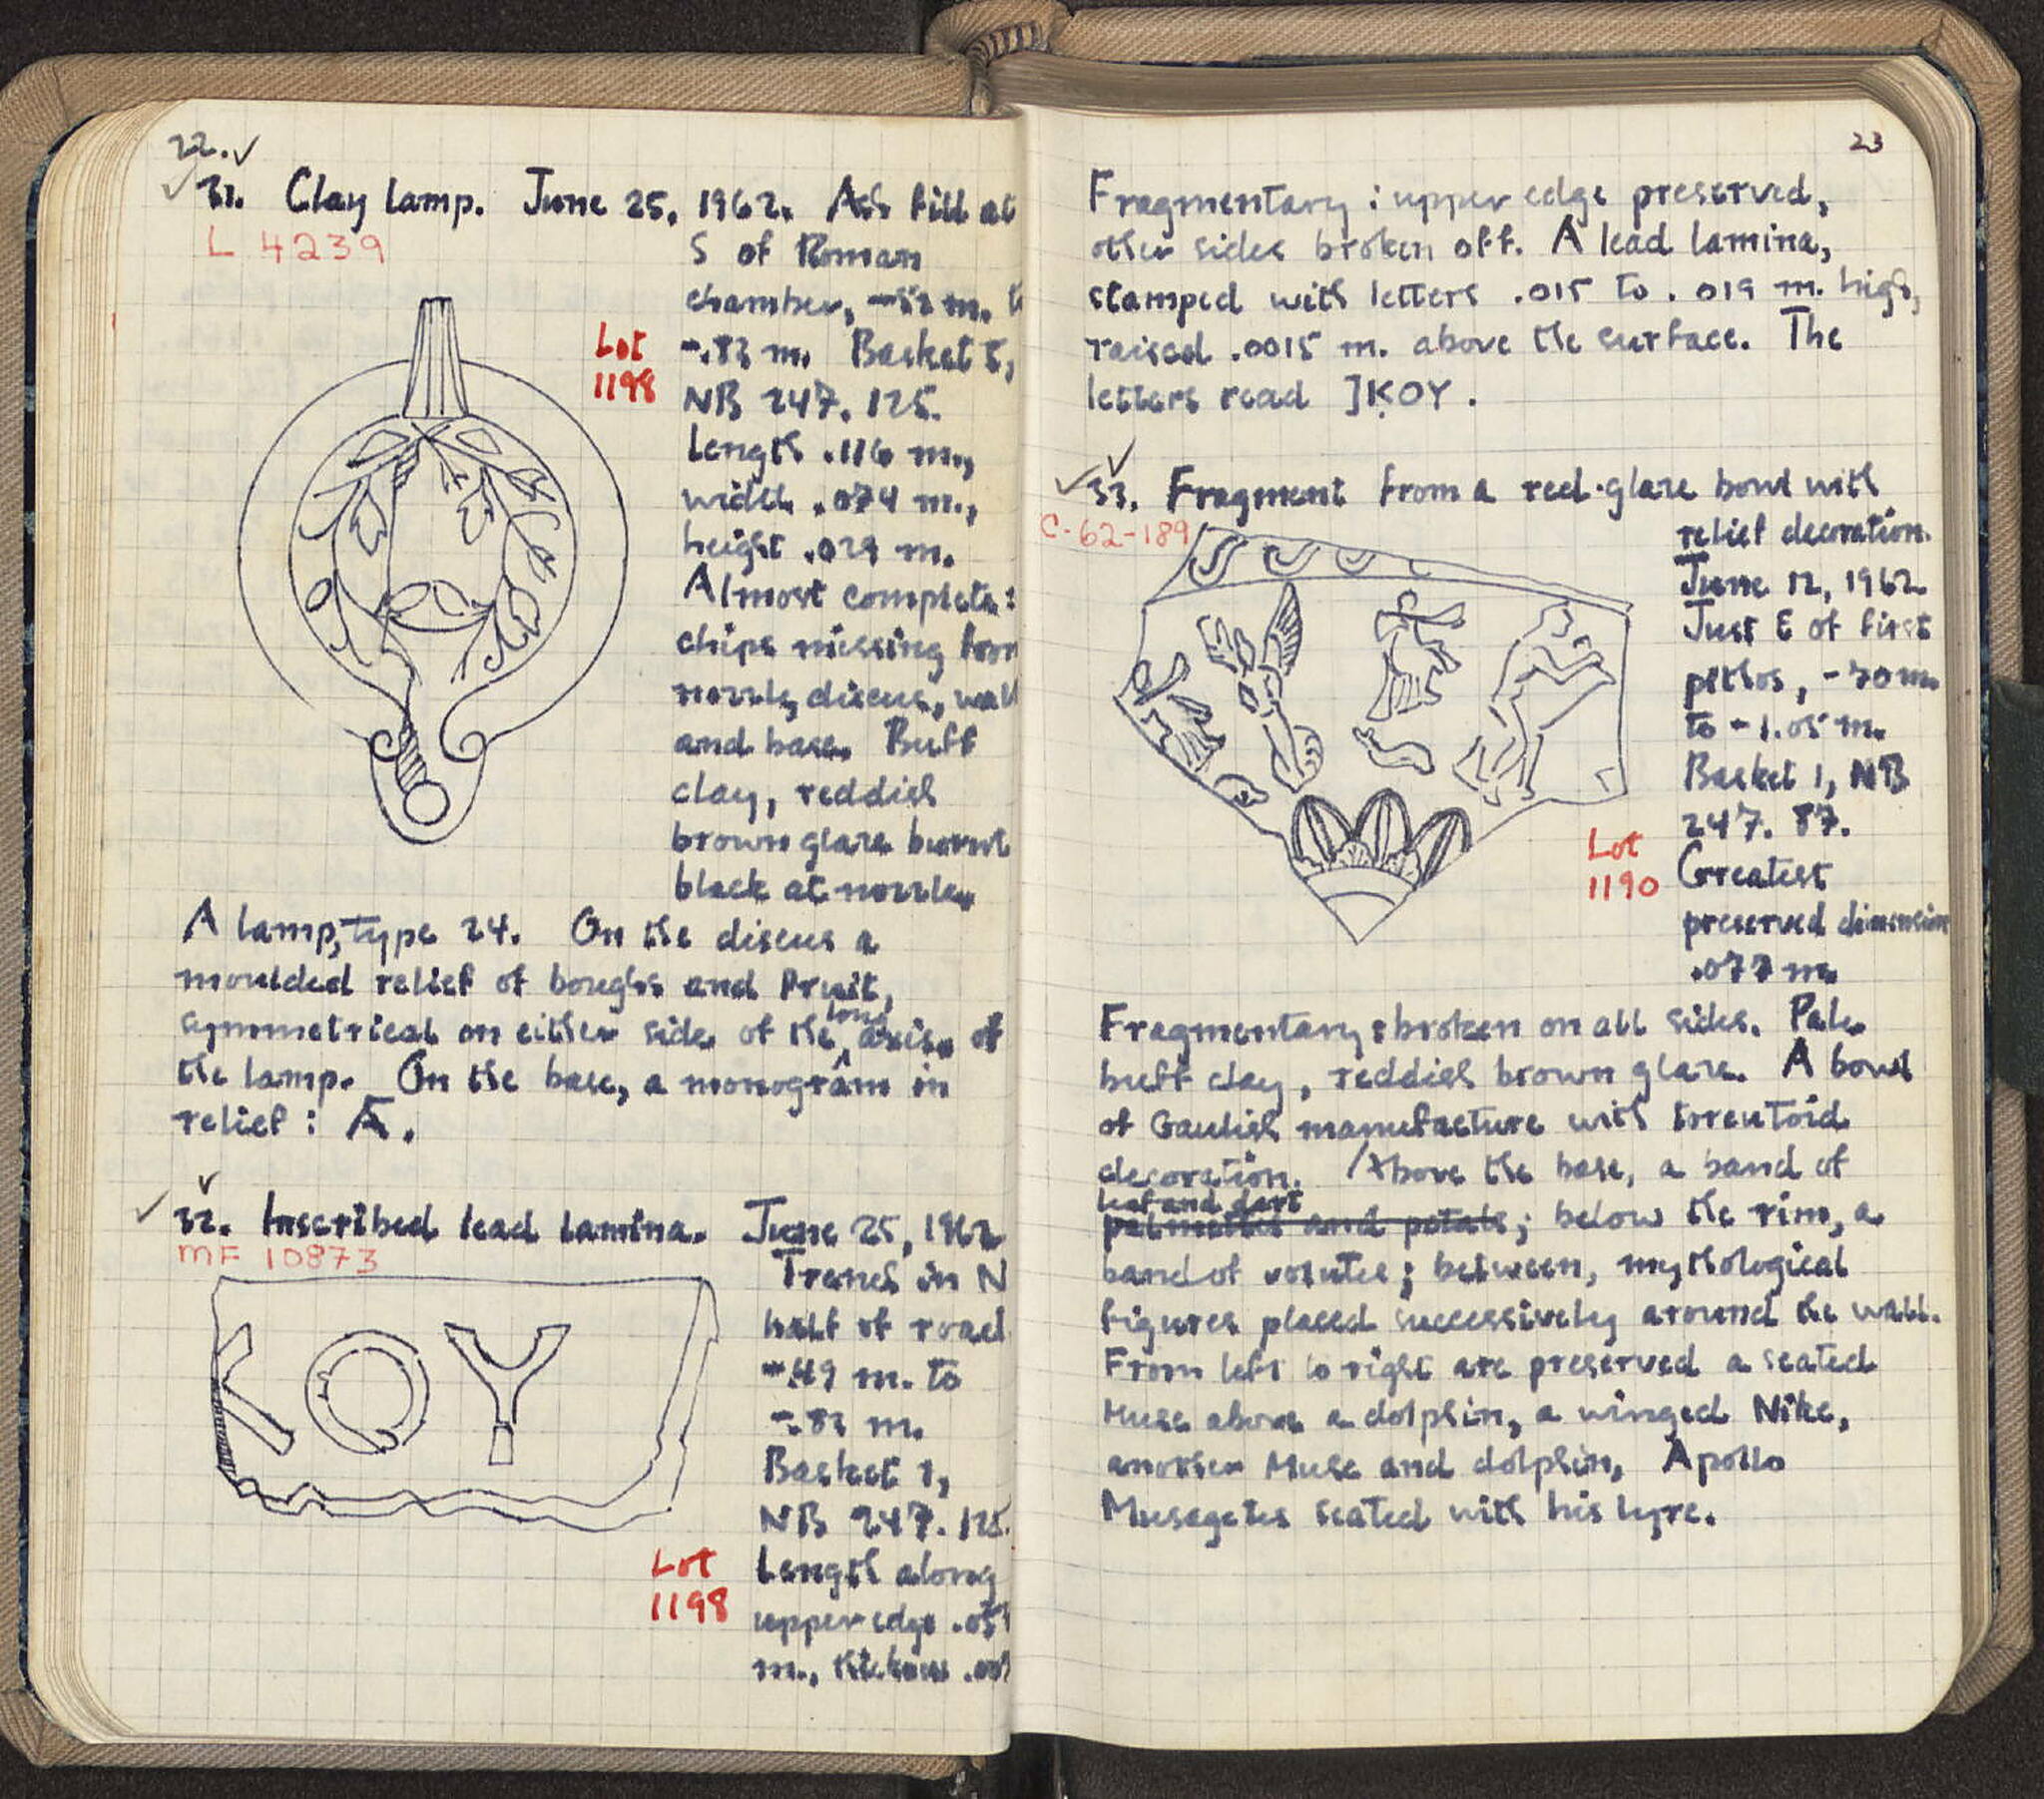 22.
31. Clay lamp. June 25, 1962. Ash fill at
L 4239
S of Roman
chamber, m.
Lot
1198
-.83 m. Basket 5,
NB 247. 125.
Length .116 m.,
width .074 m.,
height .029 m.
Almost complete:
chips missing from
nozzle, discus, wall
and base. Buff
clay, reddish
brown glaze burnt
black at nozzle.
A lamp, type 24. On the discus a
moulded relief of boughs and fruit,
symmetrical on either side of the long axis of
the lamp. On the base, a monogram in
relief:
32. Inscribed lead lamina. June 25, 1962
MF 10873
Trench in N
half of road
-.49 m. to
-.83 m.
Basket 1,
NB 247. 125.
Lot
1198
Length along
upper edge
m., thickness
KOY
23
Fragmentary: upper edge preserved,
other sides broken off. A lead lamina,
stamped with letters .015 to .019 m. high,
raised .0015 m. above the surface. The
letters read ]ḲOY.
33. Fragment from a red-glaze bowl with
C-62-189
relief decoration.
June 12, 1962
Just E of first
pithos, -.70 m.
to -1.05 m.
Basket 1, NB
247. 87.
Lot
1190
Greatest
preserved dimension
.077 m.
Fragmentary: broken on all sides. Pale
buff clay, reddish brown glaze. A bowl
of Gaulish manufacture with toreutoid
decoration. Above the base, a band of
leaf and dart
palmettes and petals; below the rim, a
band of volutes; between, mythological
figures placed successively around the wall.
From left to right are preserved a seated
Muse above a dolphin, a winged Nike,
another Muse and dolphin, Apollo
Musagetes seated with his lyre.